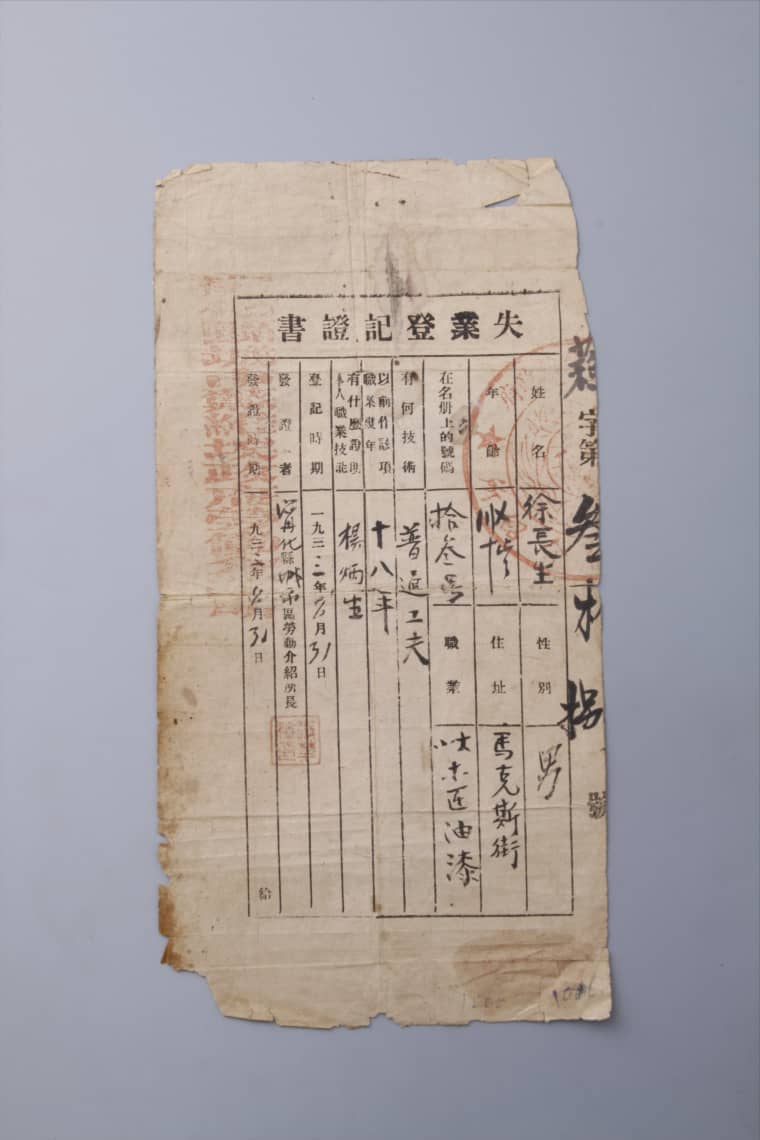 字第叁拾捌號
失業登記證書
姓名
徐長生
性別
男
年齡
四十
住址
馬克斯街
在名册上的號碼
拾叁号
職業
木匠油漆
有何技術
普通工夫
以前作該項職業幾年
十八年
有什麽證明本人職業技能
楊炳生
登記時期
一九三三年 月31日
發證者
化縣城市區勞動介紹所長
發證時期
一九三三年 月31日
給